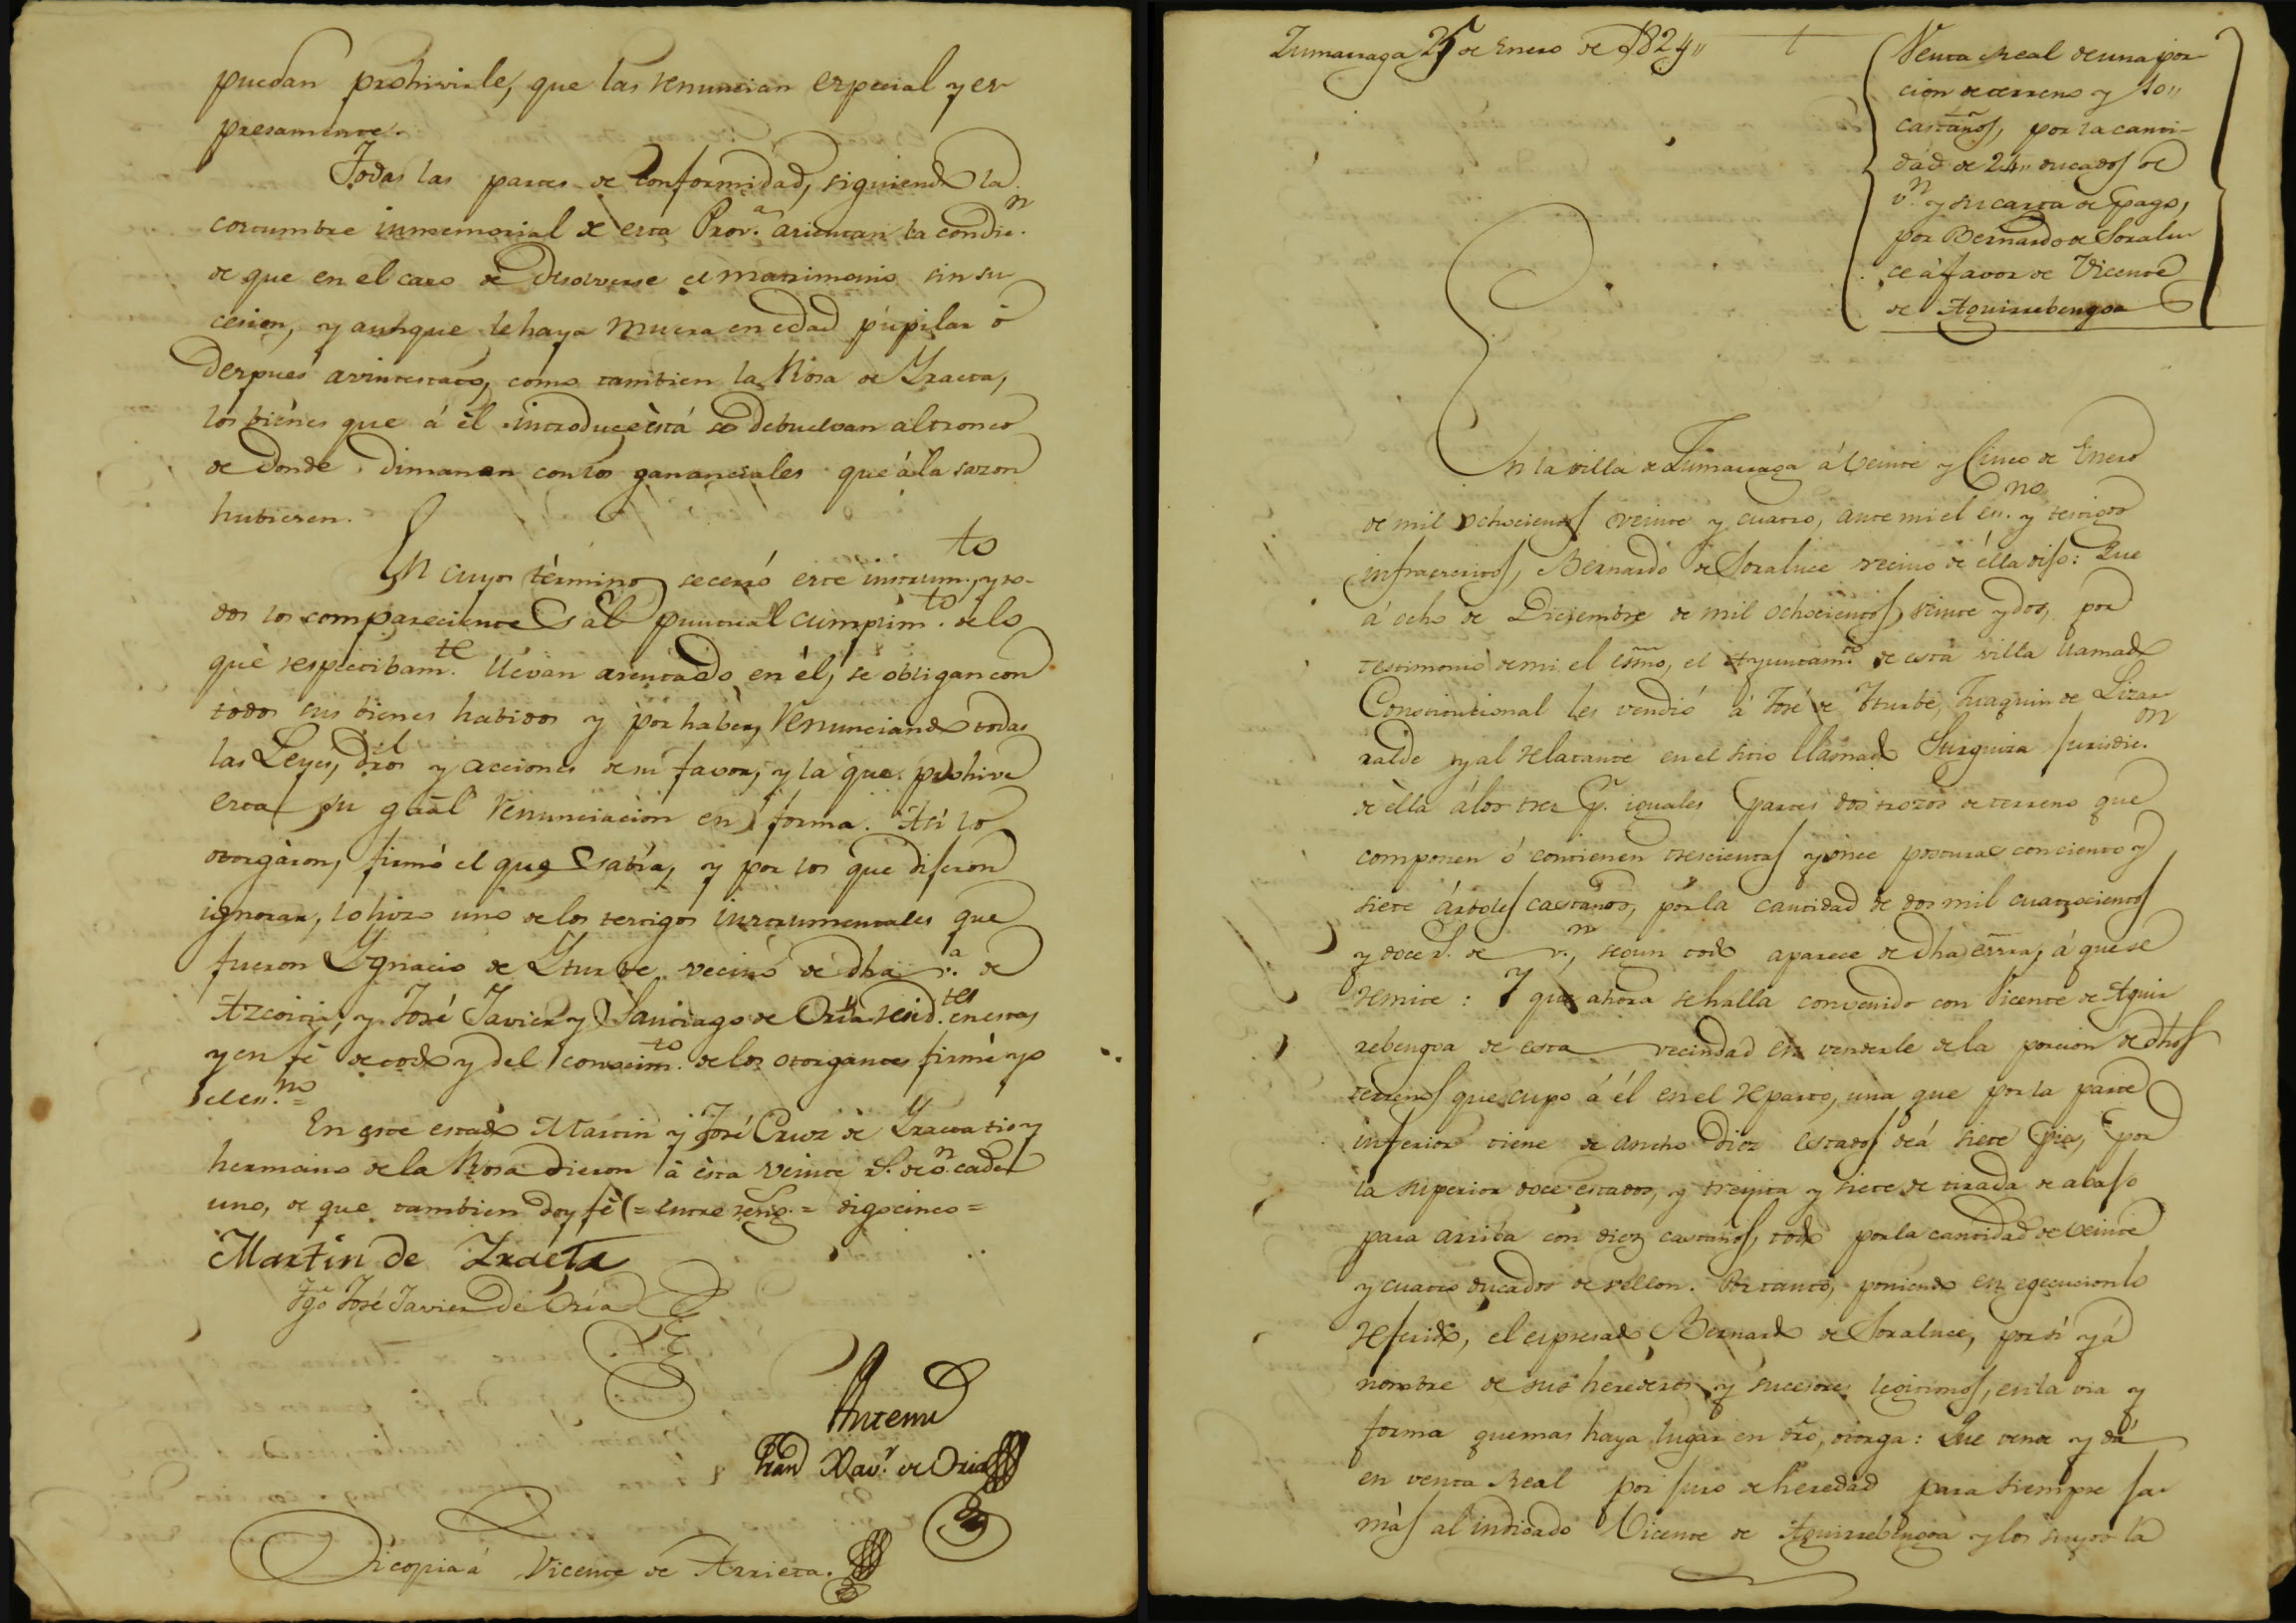 puedan prohivirle, que las renuncian especial y es
presamente.
Todas las partes de conformidad, siguiendo la
costumbre inmemorial de esta Prov.ª asientan la condic.n
de que en el caso de disolverse el matrimonio sin su
cesion, y aunque le haya muera en edad pupilar ó
despues avintestato, como tambien la Rosa de Yraeta,
los bienes que á él introduce ésta se debuelvan al tronco
de donde dimanan con los gananciales que á la sazon
hubieren.
En cuyos términos se cerró este instrum.to, y to-
dos los comparecientes al puntual cumplim.to de lo
que respectibam.te llevan asentado en él, se obligan con
todos sus bienes habidos y por haber, renunciando todas
las Leyes, dros y acciones de su favor, y la que prohive
esta su graãl renunciacion en forma. Así lo
otorgaron, firmó el que sabía, y por los que dijeron
ignorar, lo hizo uno de los testigos instrumentales que
fueron Ygnacio de Yturbe vecino de dha v.ª de
Azcoitia, y José Javier y Santiago de Oria resid.tes en esta,
y en fé de todo y del conocim.to de los otorgantes firmé yo
el es.no =
En este estado Martin y José Cruz de Yraeta tio y
hermano de la Rosa dieron á ésta veinte r.s de v.n cada
uno, de que tambien doy fé (= entre reng.s = digo cinco =
Martin de Yraeta
Tgo José Javier de Oria
Antemi
Fran.co Xav.r de Oria
Di copia á Vicente de Arrieta.
Zumarraga 25 de Enero de 1824,,
Venta Real de una por
cion de terreno y 10,,
castaños, por la canti-
dad de 24,, ducados de
v.n y su carta de pago,
por Bernardo de Soralu
ce á favor de Vicente
de Aguirrebengoa
En la villa de Zumarraga á veinte y cinco de Enero
de mil ochocientos veinte y cuatro, ante mi el es.no y testigos
infraescritos, Bernardo de Soraluce vecino de élla dijo: Que
á ocho de Diciembre de mil ochocientos veinte y dos, por
testimonio de mi el esno, el Ayuntam.to de esta villa llamado
Constitucional les vendió á José de Yturbe, Juaquin de Lizar
ralde y al relatante en el sitio llamado Surguiza jurisdic.on
de élla á los tres p.r iguales partes dos trozos de terreno que
componen ó contienen trescientas y once posturas con ciento y
siete árboles castaños, por la cantidad de dos mil cuatrocientos
y doce r.s de v.n, segun todo aparece de dha esrra, á que se
remite: Y que ahora se halla convenido con Vicente de Aguir
rebengoa de esta vecindad en venderle de la porcion de dhos
terrenos que cupo á él en el reparto, una que por la parte
inferior tiene de ancho diez estados de á siete pies, por
la superior doce estados, y treynta y siete de tirada de abajo
para arriba con diez castaños, todo por la cantidad de veinte
y cuatro ducados de vellon. Por tanto, poniendo en egecucion lo
referido, el espresado Bernardo de Soraluce, por sí y á
nombre de sus herederos y sucesores legitimos, en la via y
forma que mas haya lugar en dro, otorga: Que vende y dá
en venta Real por juro de heredad para siempre ja-
más al indicado Vicente de Aguirrebengoa y los suyos la